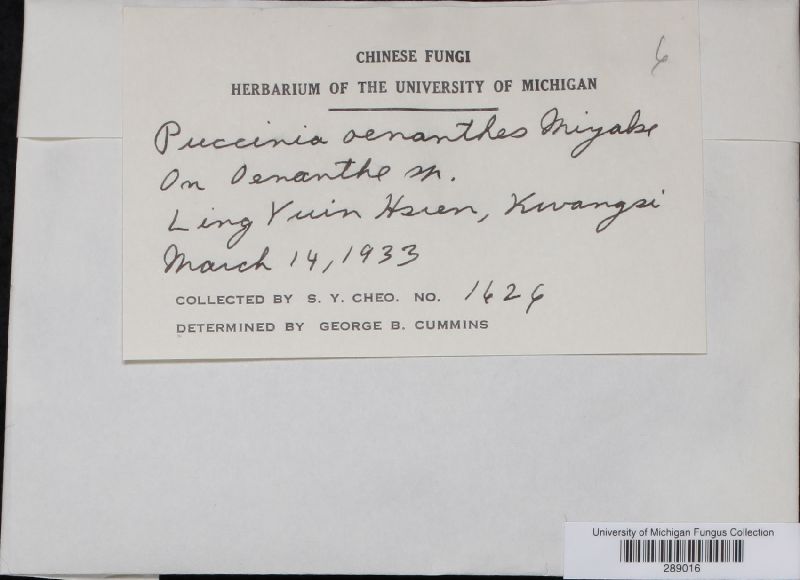 6
CHINESE FUNGI
HERBARIUM OF THE UNIVERSITY OF MICHIGAN
Puccinia oenanthes Miyabe
On Oenanthe sp.
Ling Yuin Hsien, Kwangsi
March 14, 1933
COLLECTED BY S. Y. CHEO. NO. 1626
DETERMINED BY GEORGE B. CUMMINS
University of Michigan Fungus Collection
289016